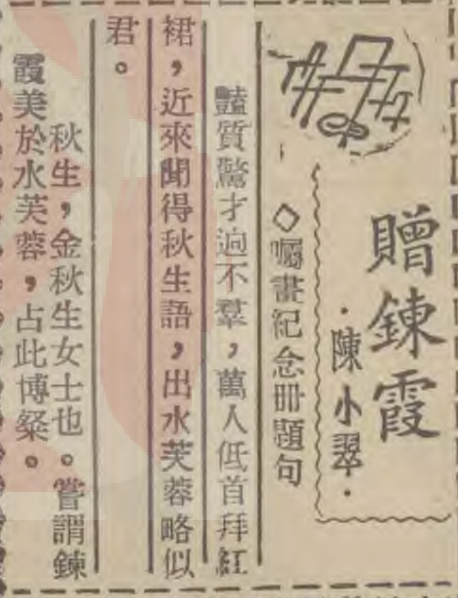 贈鍊霞
·陳小翠·
◇囑書紀念冊題句
豔質驚才逈不羣，萬人低首拜紅
裙，近來聞得秋生語，出水芙蓉略似
君。
秋生，金秋生女士也。嘗謂鍊
霞美於水芙蓉，占此博粲。